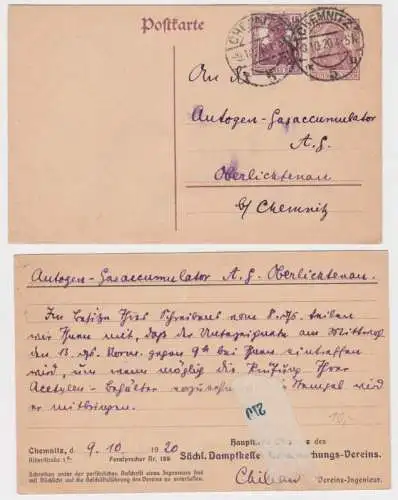 Postkarte
CHEMNITZ
CHEMNITZ
9.10.20
An die
Autogen-Gasaccumulator
A.G.
Oberlichtenau
b/Chemnitz
Autogen-Gasaccumulator A.G. Oberlichtenau.
Im Besitze Ihres Schreibens vom 8. ds. teilen
wir Ihnen mit, daß der Unterzeichnete am Mittwoch
den 13. ds. Vorm. gegen 9h bei Ihnen eintreffen
wird, um wenn möglich die Prüfung Ihrer
Acetylen-Behälter Stempel wird
er mitbringen.
Chemnitz, d. 9. 10. 1920
Fernsprecher Nr. 188
des
Sächs. Dampfkessel Vereins.
Vereins-Ingenieur.
Schreiben unter der persönlichen Aufschrift eines Ingenieurs sind
mit Rücksicht auf die Geschäftsführung des Vereins zu unterlassen.